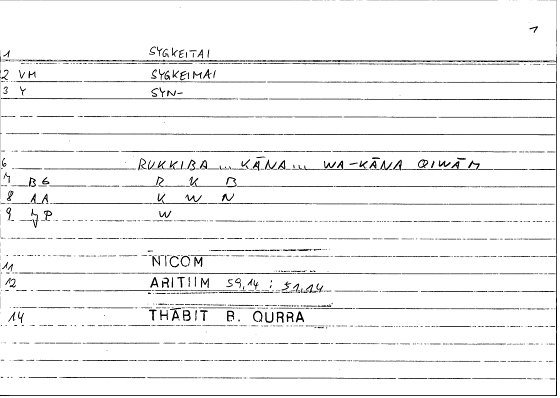 1
1 SYGKEITAI
2 VM SYGKEIMAI
3 Y SYN-
6 RUKKIBA ... KĀNA ... WA-KĀNA QIWĀM
7 BS R K B
8 AA K W N
9 W
11 NICOM
12 ARITIIM 59,14 ; 51,14
14 THĀBIT B. QURRA